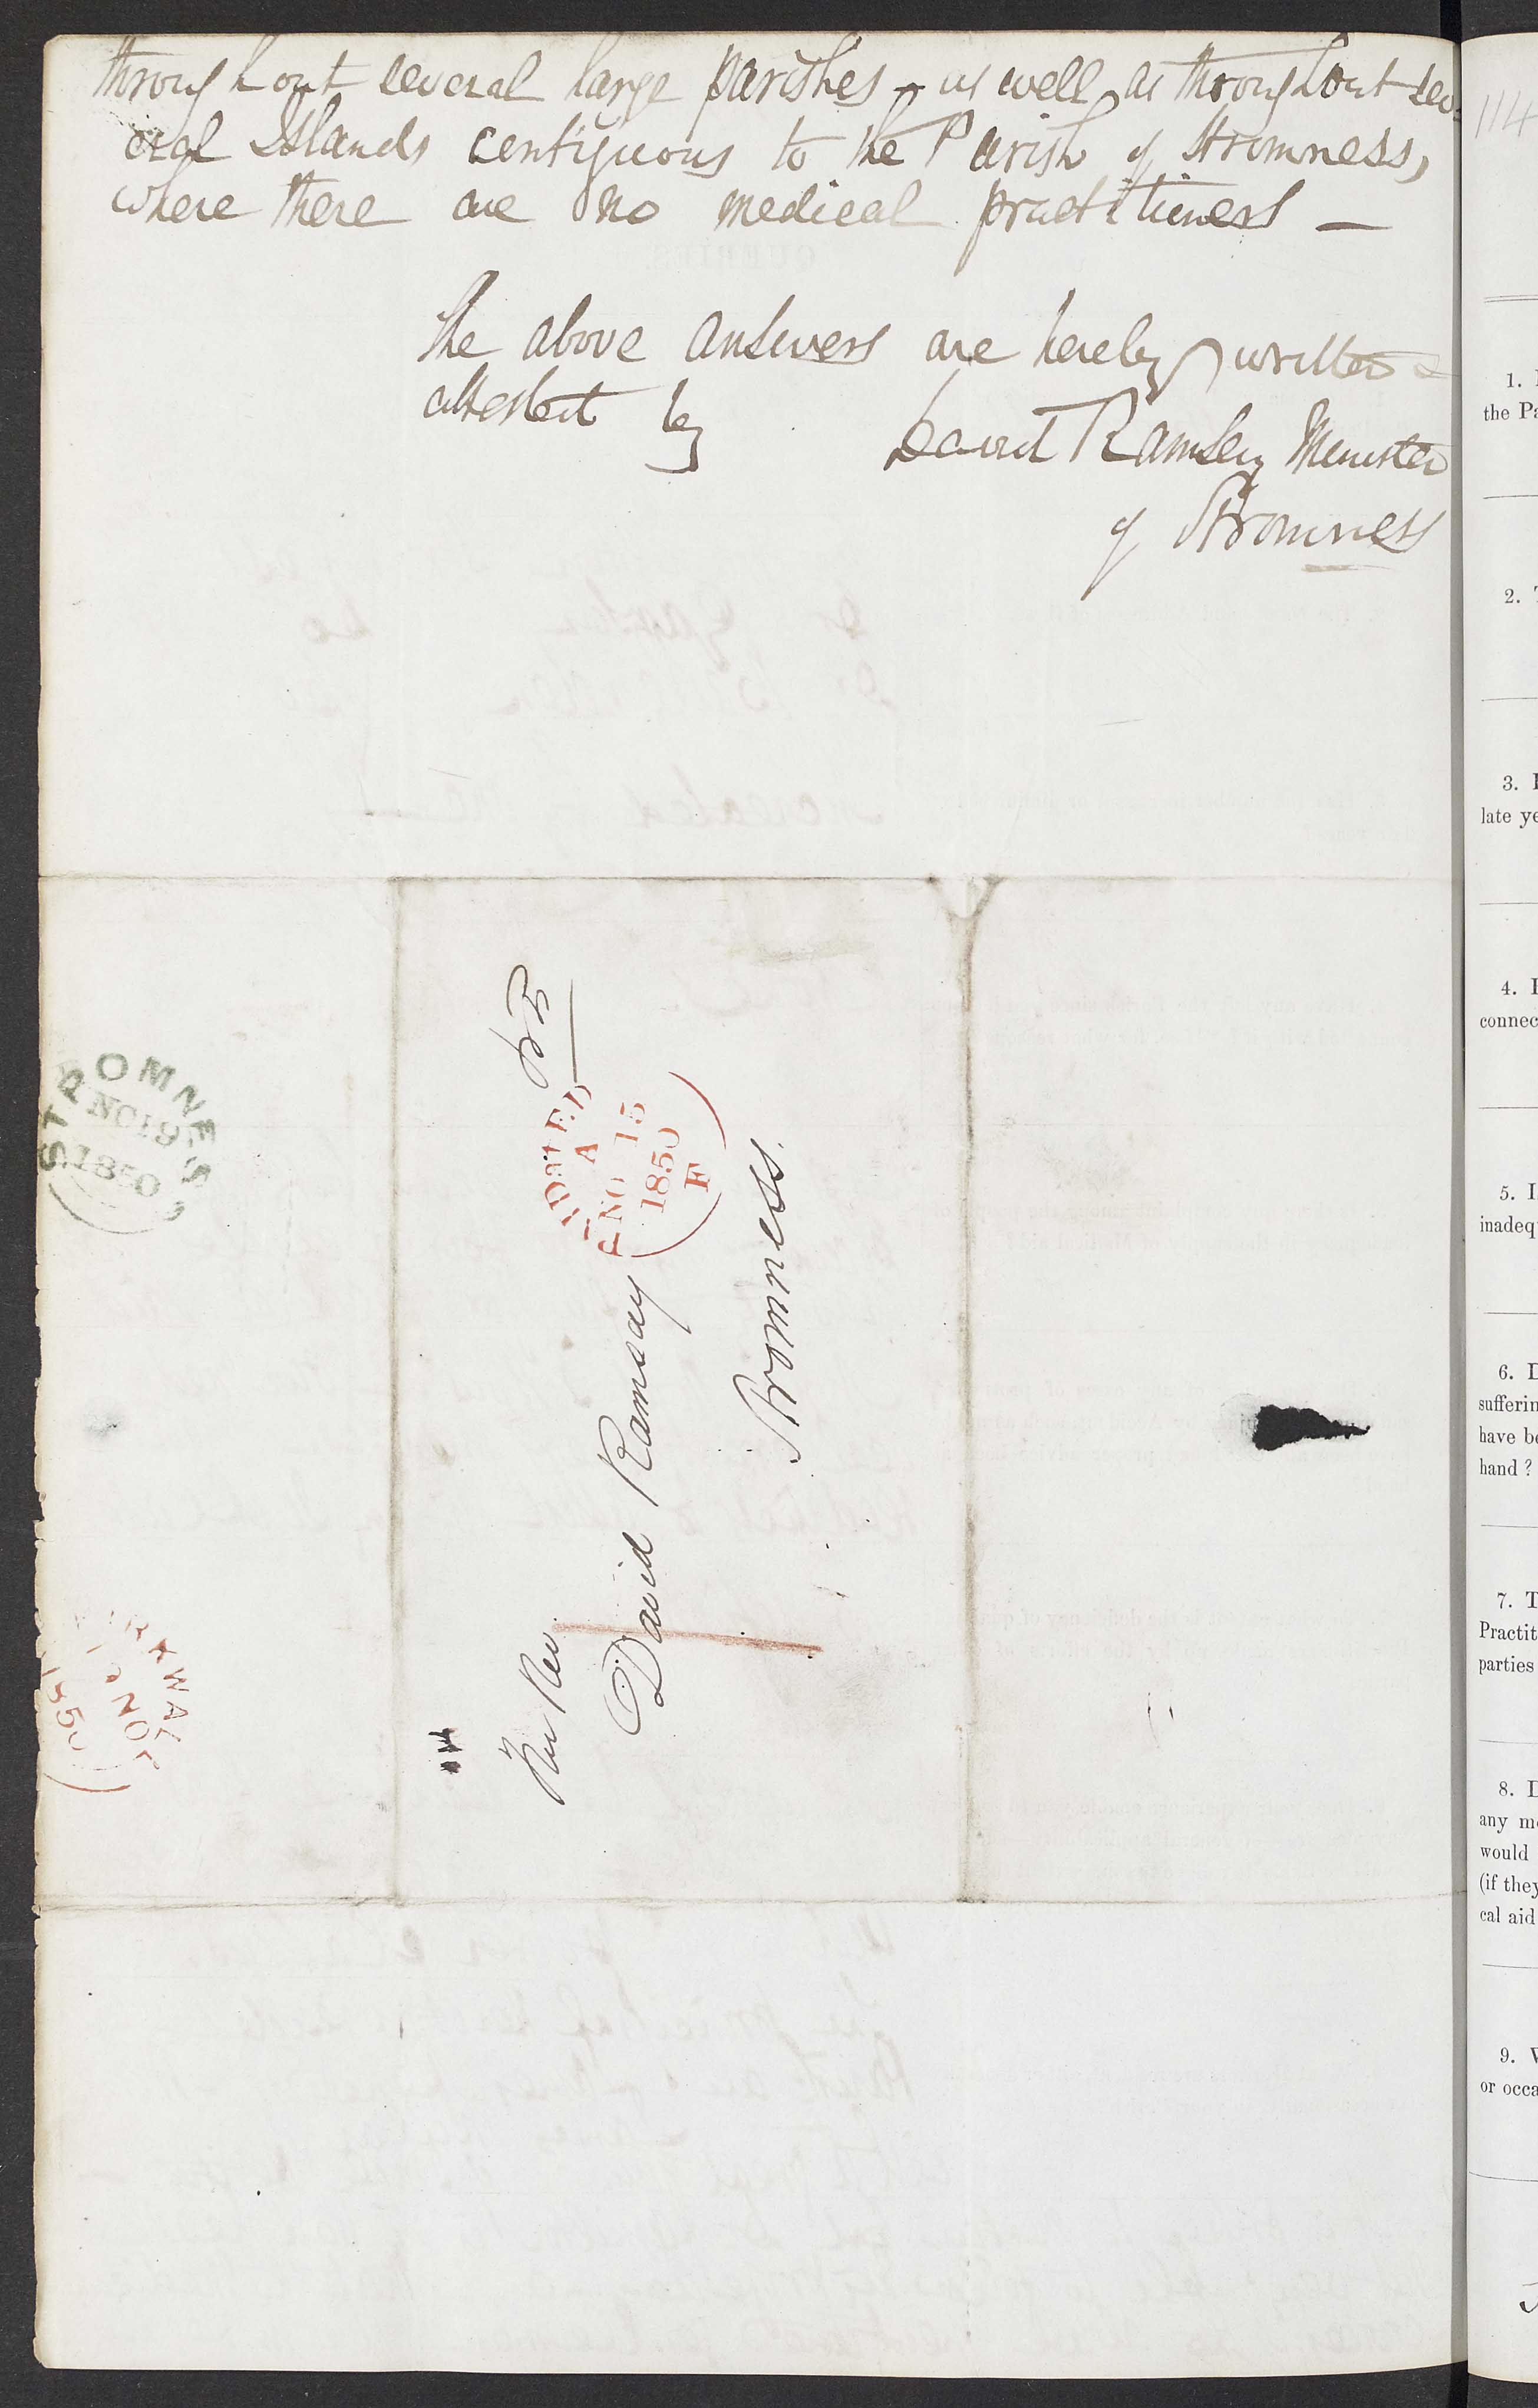 throughout several large parishes - as well as throughout sev-
eral Islands contiguous to the Parish of Stromness,
where there are no medical practitioners —
The above answers are hereby written &
attested by
David Ramsay Minister
of Stromness
The Rev
David Ramsay
Stromness.
STROMNESS
NO 19
1850
A
NO 15
1850
F
1850
114
1.
the Pa
2.
3.
late ye
4. I
connec
5. I
inadeq
6. D
sufferin
have be
hand ?
7. T
Practit
parties
8. D
any me
would
(if they
cal aid
9. W
or occa